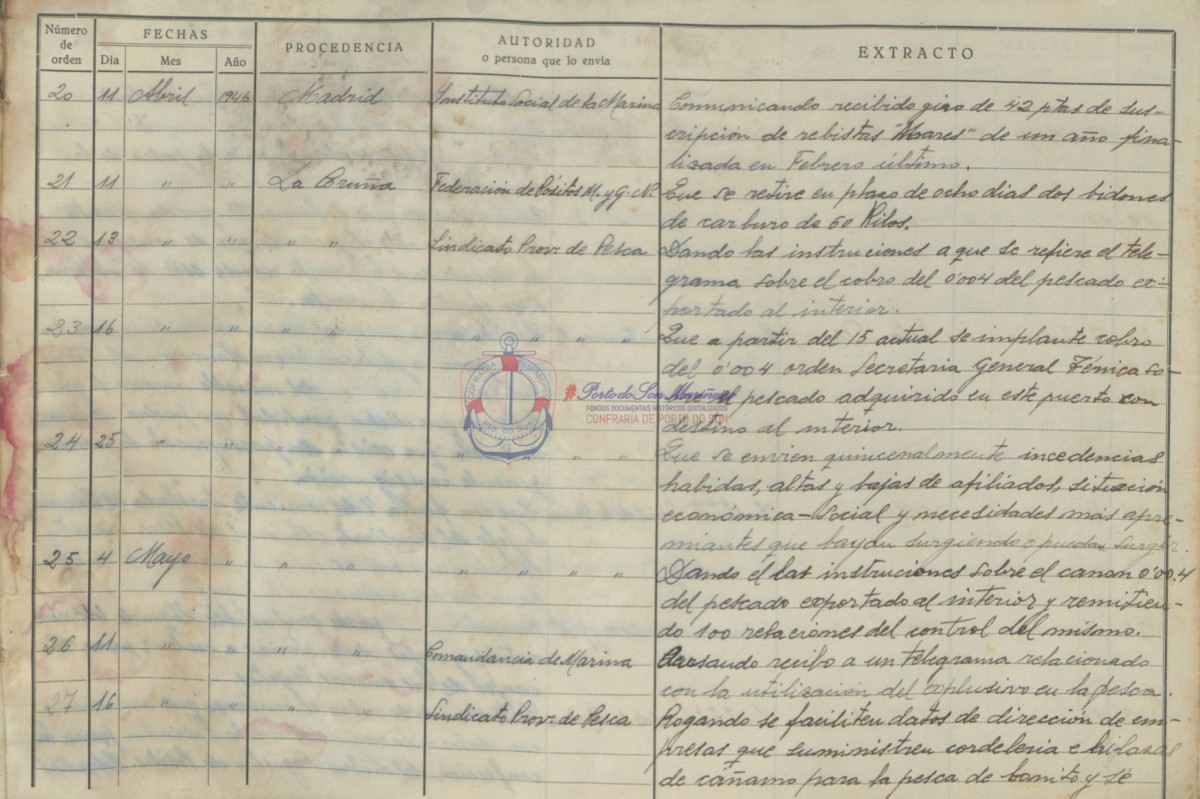 Número de orden FECHAS PROCEDENCIA AUTORIDAD o persona que lo envía EXTRACTO
Día Mes Año
20 11 Abril 1946 Madrid Instituto Social de la Marina Comunicando recibido giro de 42 ptas de sus-
cripción de rebistas "Mares" de un año fina-
lizada en Febrero último.
21 11 " " La Coruña Federación de Pósitos M. y G. N. Que se retire en plazo de ocho dias dos bidones
de carburo de 60 Kilos.
22 13 " " " " Sindicato Prov. de Pesca Dando las instruciones a que se refiere el tele-
grama sobre el cobro del 0'004 del pescado ex-
portado al interior.
23 16 " " " " " " " " Que a partir del 15 actual se implante cobro
del 0'004 orden Secretaria General Ténica so-
el pescado adquirido en este puerto con
destino al interior.
24 25 " " " " " " Que se envien quincenalmente incedencias
habidas, altas y bajas de afiliados, situación
económica-social y necesidades más apre-
miantes que bayan surgiendo o puedan surgir.
25 4 Mayo " " " " " " " Dando el las instruciones sobre el canon 0'00.4
del pescado exportado al interior y remitien-
do 100 relaciones del control del mismo.
26 11 " " " " Comandancia de Marina Acusando recibo a un telegrama relacionado
con la utilización del explusivo en la pesca.
27 16 " " " " Sindicato Prov. de Pesca Rogando se faciliten datos de dirección de em-
presas que suministren cordeleria e hilazas
de cáñamo para la pesca de bonito y se
COFRADÍA
Pto. do Son
#Porto do Son Mariñeiro
FONDOS DOCUMENTAIS HISTÓRICOS DIXITALIZADOS
CONFRARÍA DE PORTO DO SON